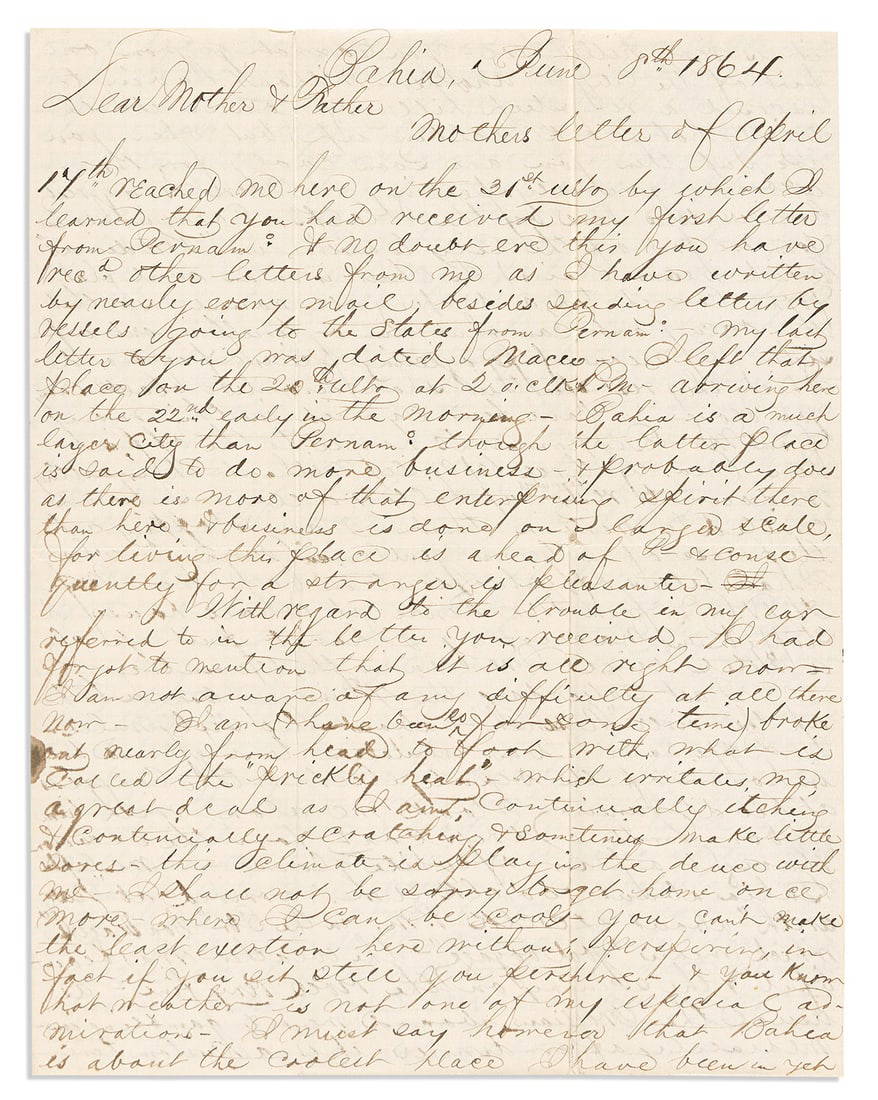 Bahia, June 8th 1864.
Dear Mother & Father
Mothers letter of April
17th reached me here on the 31st ulto by which I
learned that you had received my first letter
from Pernamo. & no doubt ere this you have
recd other letters from me as I have written
by nearly every mail, besides sending letters by
vessels going to the States from Pernamo. - my last
letter to you was dated Maceo - I left that
place on the 20th ulto at 2 o.clk P.M - arriving here
on the 22nd early in the morning - Bahia is a much
larger city than Pernamo. though the latter place
is said to do more business - & probably does
as there is more of that enterprising spirit there
than here & business is done on a larger scale,
for living this place is ahead of P- & conse-
quently for a stranger is pleasanter -
With regard to the trouble in my ear
referred to in the letter you received - I had
forgot to mention that it is all right now -
I am not aware of any difficulty at all there
now - I am (& have been so for some time) broke
out nearly from head to foot with what is
called the "prickly heat" - which irritates me
a great deal as I am continually itching
& continually scratching & sometimes make little
sores - this climate is playing the deuce with
me - I shall not be sorry to get home once
more - where I can be cool - you can't make
the least exertion here without perspiring, in
fact if you sit still you perspire - & you know
hot weather - is not one of my especial ad-
mirations - I must say however that Bahia
is about the coolest place I have been in yet